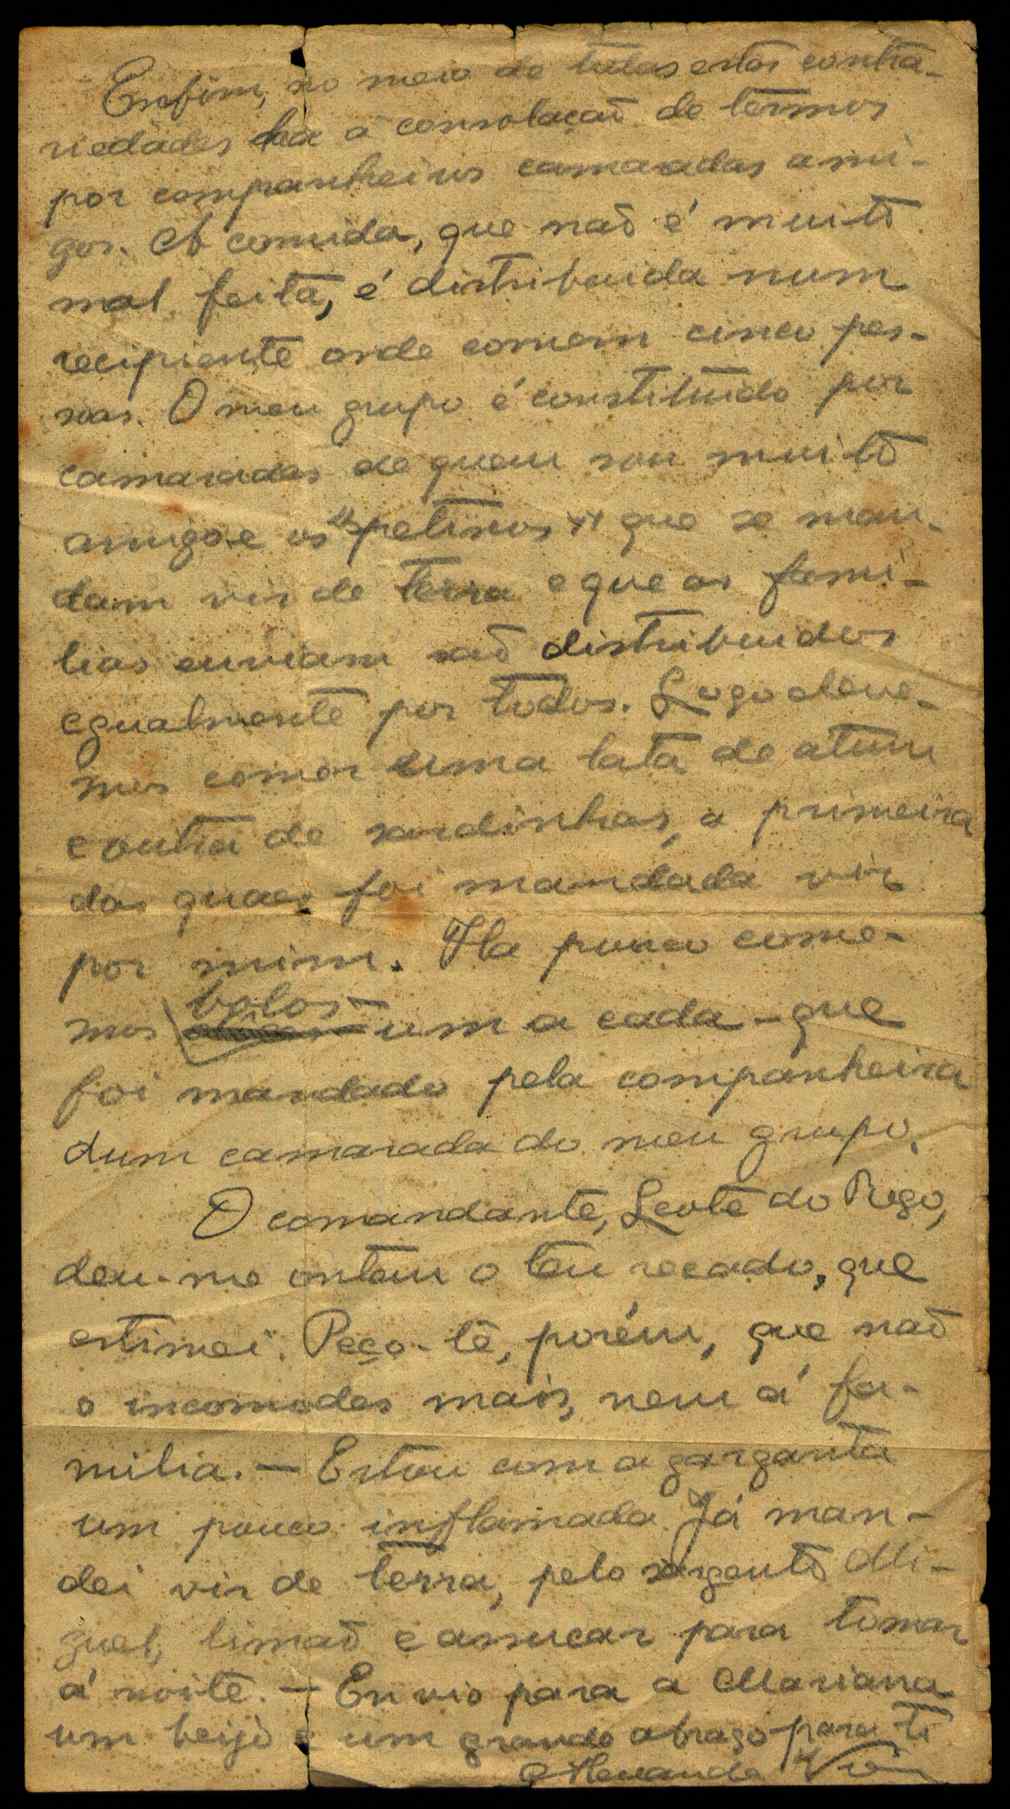 Enfim, no meio de todas estas contra-
riedades ha a consolação de termos
por companheiros camaradas ami-
gos. A comida, que não é muito
mal feita, é distribuida num
recipiente onde comem cinco pes-
soas. O meu grupo é constituido por
camaradas de quem sou muito
amigo e os "petiscos" que se man-
dam vir de terra e que as fami-
lias enviam são distribuidos
egualmente por todos. Logo deve-
mos comer uma lata de atum
e outra de sardinhas, a primeira
das quaes foi mandada vir
por mim. Ha pouco come-
mos bolos - um a cada - que
foi mandado pela companheira
dum camarada do meu grupo.
O comandante, Leote do Rego,
deu-me ontem o teu recado, que
estimei. Peço-te, porém, que não
o incomodes mais, nem á fa-
milia. - Estou com a garganta
um pouco inflamada. Já man-
dei vir de terra, pelo sargento Mi-
guel, limão e assucar para tomar
á noite. - Envio para a Mariana
um beijo e um grande abraço para ti
Alexandre Vieira